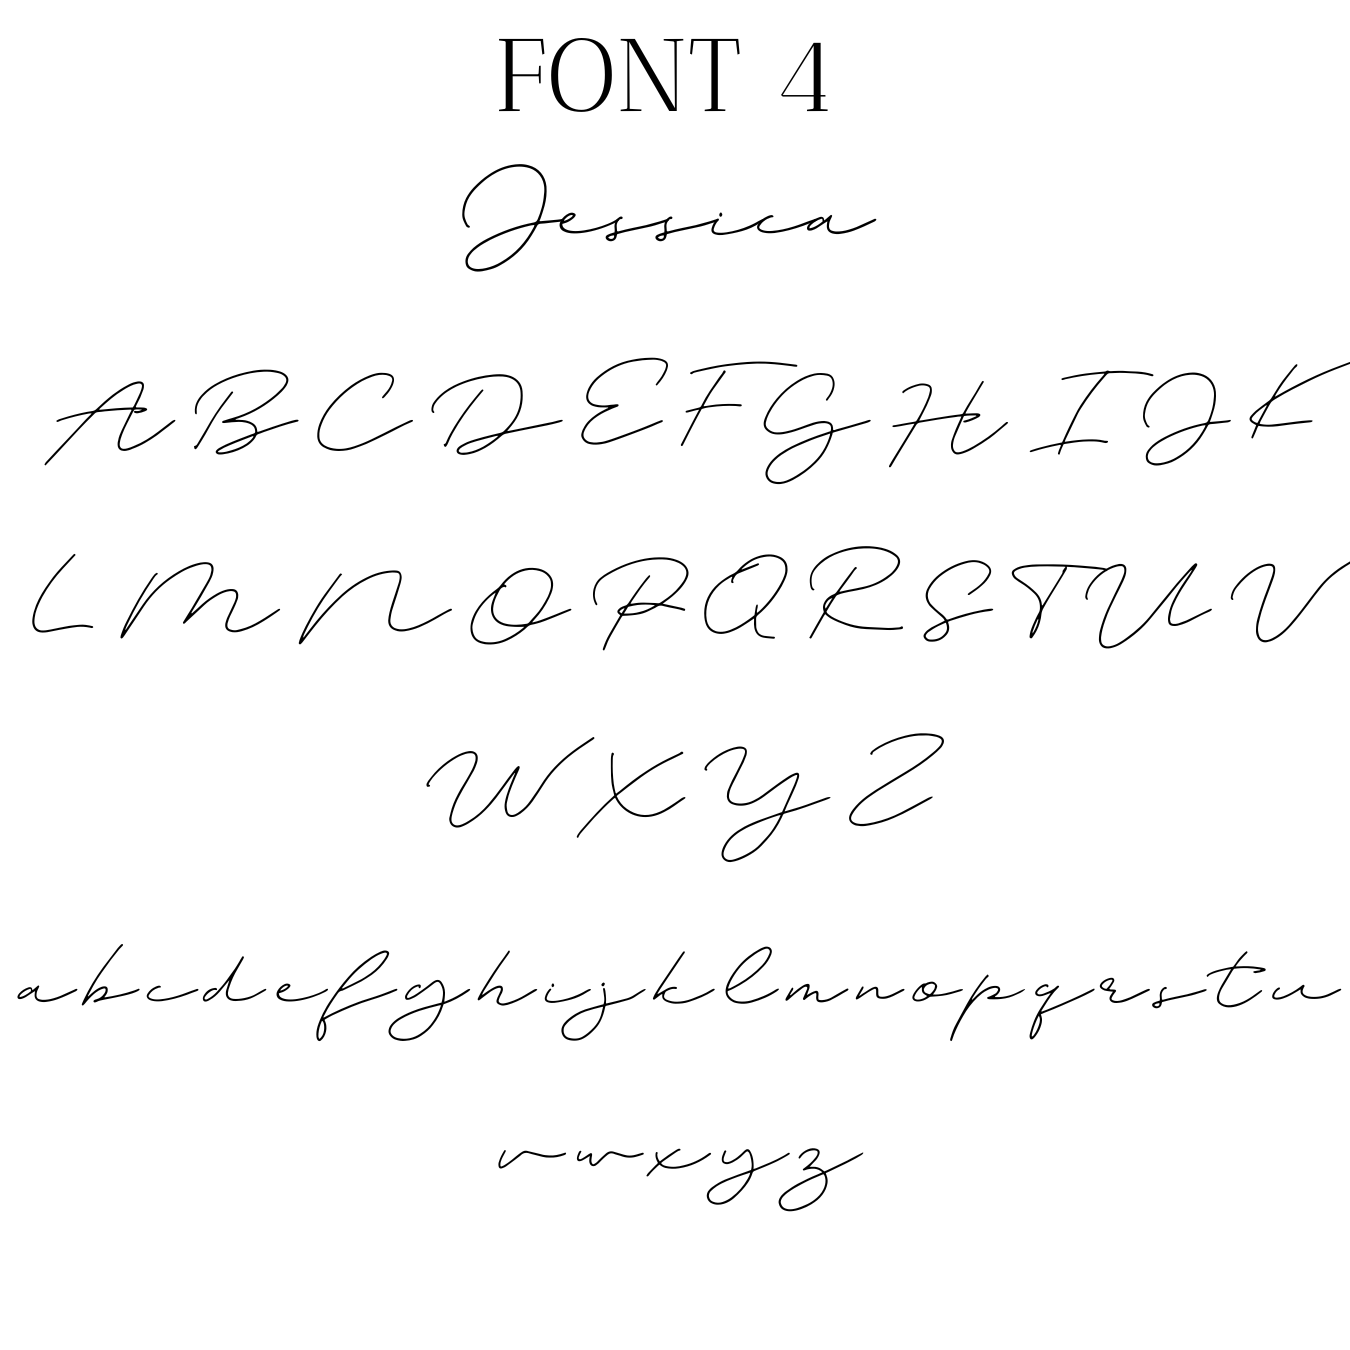 FONT 4
Jessica
A B C D E F G H I J K
L M N O P Q R S T U V
W X Y Z
a b c d e f g h i j k l m n o p q r s t u
v w x y z